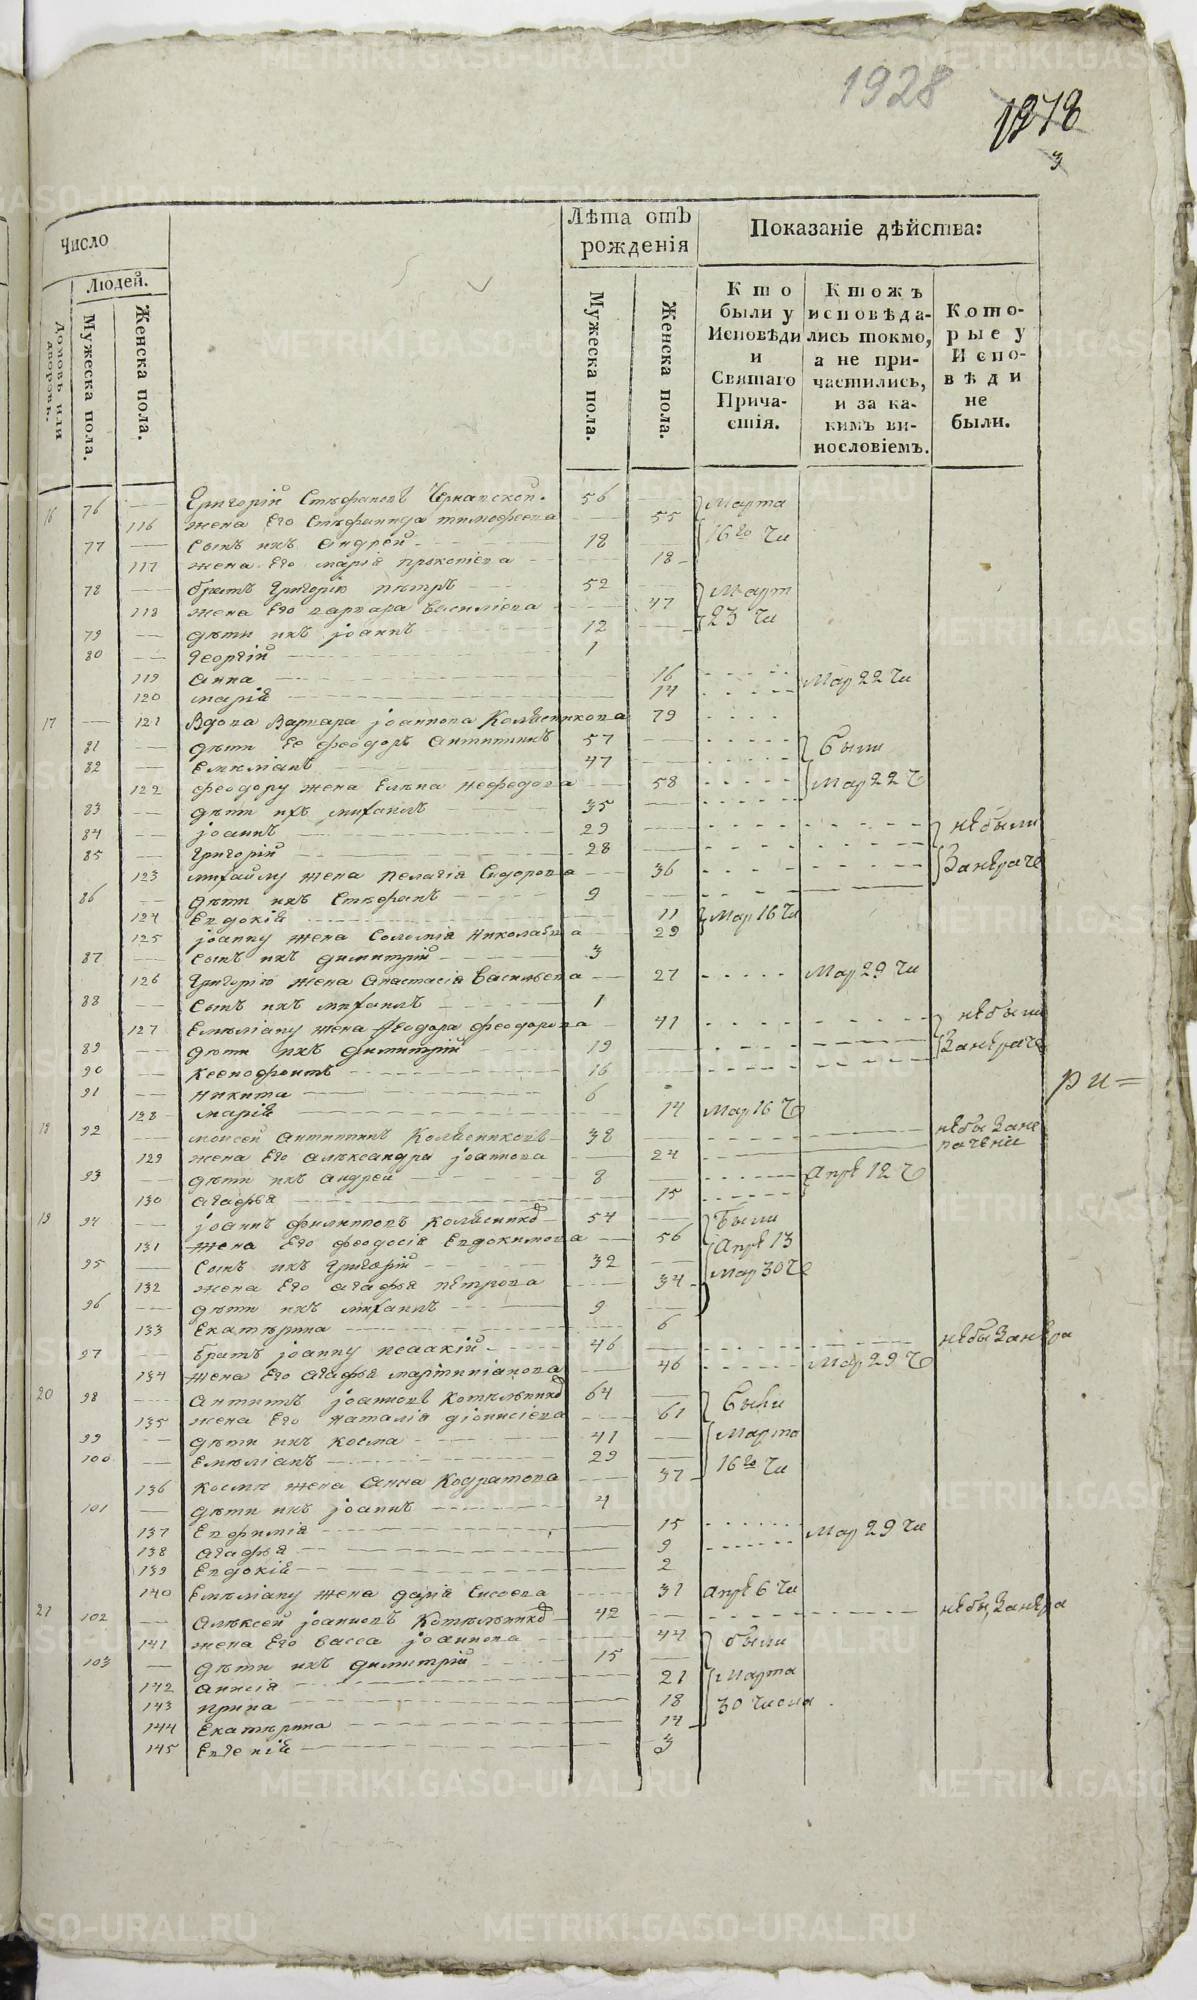 1928
1978
3
Число
Людей.
Домовъ или дворовъ.
Мужеска пола.
Женска пола.
Лѣта отъ рожденія
Мужеска пола.
Женска пола.
Показаніе дѣйства:
Кто были у Исповѣди и Святаго Причастія.
Ктожъ исповѣдались токмо, а не причастились, и за какимъ винословіемъ.
Которые у Исповѣди не были.
16 76 Григорій Стефановъ 56 Марта
116 жена Его Стефанида тимофеева 55 16го Чи
77 Сынъ ихъ Андрей 18
117 жена Его марія прокопіева 18
78 братъ Григорію петръ 52 Март
118 жена Его варвара василіева 47 23 Чи
79 дѣти ихъ јоаннъ 12
80 Георгій 1
119 Анна 16 Мар 22 Чи
120 марія 14
17 121 Вдова Варвара јоаннова Колясникова 79
81 дѣти Ее феодоръ Антипинъ 57 были
82 Емеліанъ 47
122 феодору жена Елена нефедова 58 Мар 22 Ч
83 дѣти ихъ михаилъ 35
84 јоаннъ 29 небыли
85 Григорій 28
123 михаилу жена пелагія Сидорова 36
86 дѣти ихъ Стефанъ 9
124 Евдокія 11 Мар 16 Чи
125 јоанну жена Соломія николаева 29
87 Сынъ ихъ димитрій 3
126 Григорію жена Анастасія Васильева 27 Мар 29 Чи
88 Сынъ ихъ михаилъ 1
127 Емеліану жена феодора феодорова 41 небыли
89 дѣти ихъ димитрій 19
90 Ксенофонтъ 16
ри=
91 никита 6
128 марія 14 Мар 16 Ч
18 92 моисей Антипинъ Колясниковъ 38
129 жена Его Александра јоаннова 24
93 дѣти ихъ Андрей 8 Апре 12 Ч
130 Агафья 15
19 94 јоаннъ филипповъ Колясниковъ 54 были
131 жена Его феодосія Евдокимова 56 Апре 13
95 Сынъ ихъ Григорій 32
132 жена Его Агафья петрова 34 Мар 30 Ч
96 дѣти ихъ михаилъ 9
133 Екатерина 6
97 братъ јоанну исаакій 46
134 жена Его Агафья мартиніанова 46 Мар 29 Ч
20 98 Антипъ јоанновъ Котельниковъ 64 были
135 жена Его наталія діонисіева 61
99 дѣти ихъ косма 41 Марта
100 Емеліанъ 29
136 Космѣ жена Анна Кодратова 37 16го Чи
101 дѣти ихъ јоаннъ 4
137 Евфимія 15 Мар 29 Чи
138 Агафья 9
139 Евдокія 2
140 Емеліану жена дарія Сисоева 31 Апре 6 Чи
21 102 Алексей јоанновъ Котельниковъ 42
141 жена Его васса јоаннова 44 были
103 дѣти ихъ димитрій 15
142 Анисія 21 Марта
143 ирина 18 30 Числа
144 Екатерина 14
145 Евгенія 3